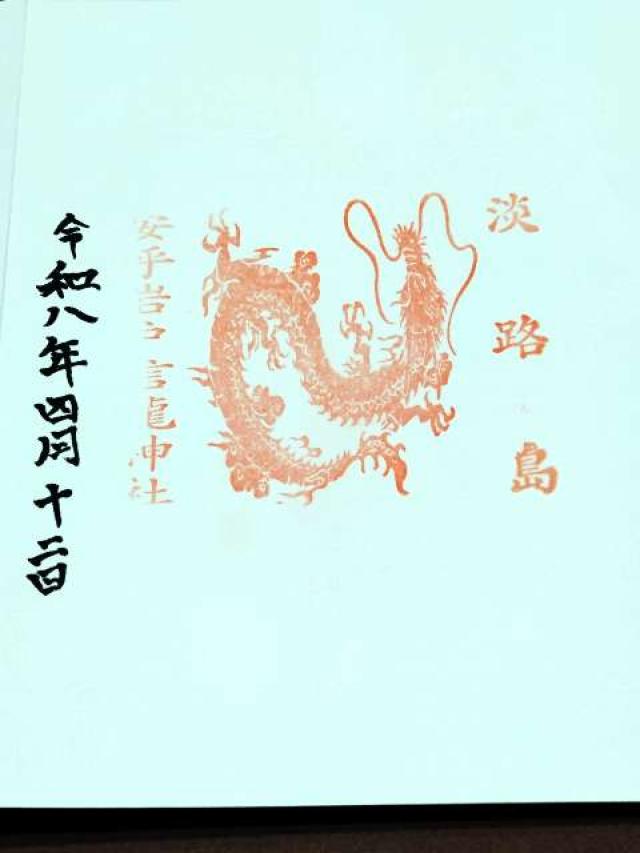 淡路島
安乎岩戸信龍神社
令和八年四月十二日